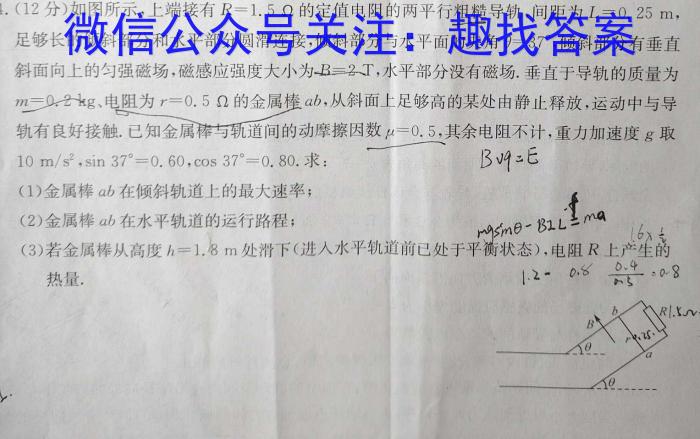 .(12 分)如图所示,上端接有 R=1.5 Ω 的定值电阻的两平行粗糙导轨,间距为 L=0.25 m,
微信公众号关注:趣找答案
足够长 水平部分圆滑连接, 部分与水平面 有垂直
斜面向上的匀强磁场,磁感应强度大小为 B=2 T,水平部分没有磁场.垂直于导轨的质量为
m=0.2 kg、电阻为 r=0.5 Ω 的金属棒 ab,从斜面上足够高的某处由静止释放,运动中与导
轨有良好接触.已知金属棒与轨道间的动摩擦因数 μ=0.5,其余电阻不计,重力加速度 g 取
10 m/s²,sin 37°=0.60,cos 37°=0.80.求:
Bvq=E
(1)金属棒 ab 在倾斜轨道上的最大速率;
(2)金属棒 ab 在水平轨道的运行路程;
mgsinθ-BIL-f=ma
(3)若金属棒从高度 h=1.8 m 处滑下(进入水平轨道前已处于平衡状态),电阻 R 上产生的
热量.
1.2- 0.8 0.4 =0.8
B b R 1.5Ω
θ a
θ